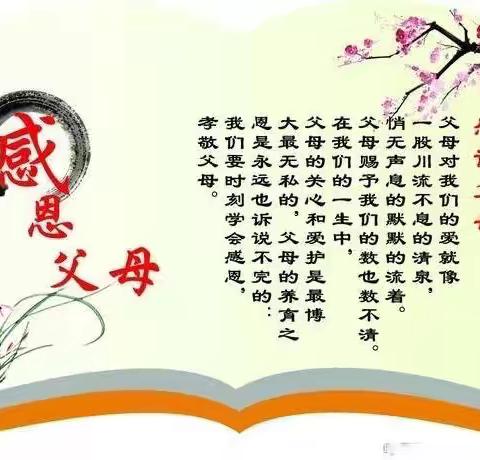 父母对我们的爱就像
一股川流不息的清泉，
悄无声息的默默的流着。
父母赐予我们的数也数不清。
在我们的一生中，
父母的关心和爱护是最博
大最无私的，父母的养育之
恩是永远也诉说不完的：
我们要时刻学会感恩，
孝敬父母。
感恩父母